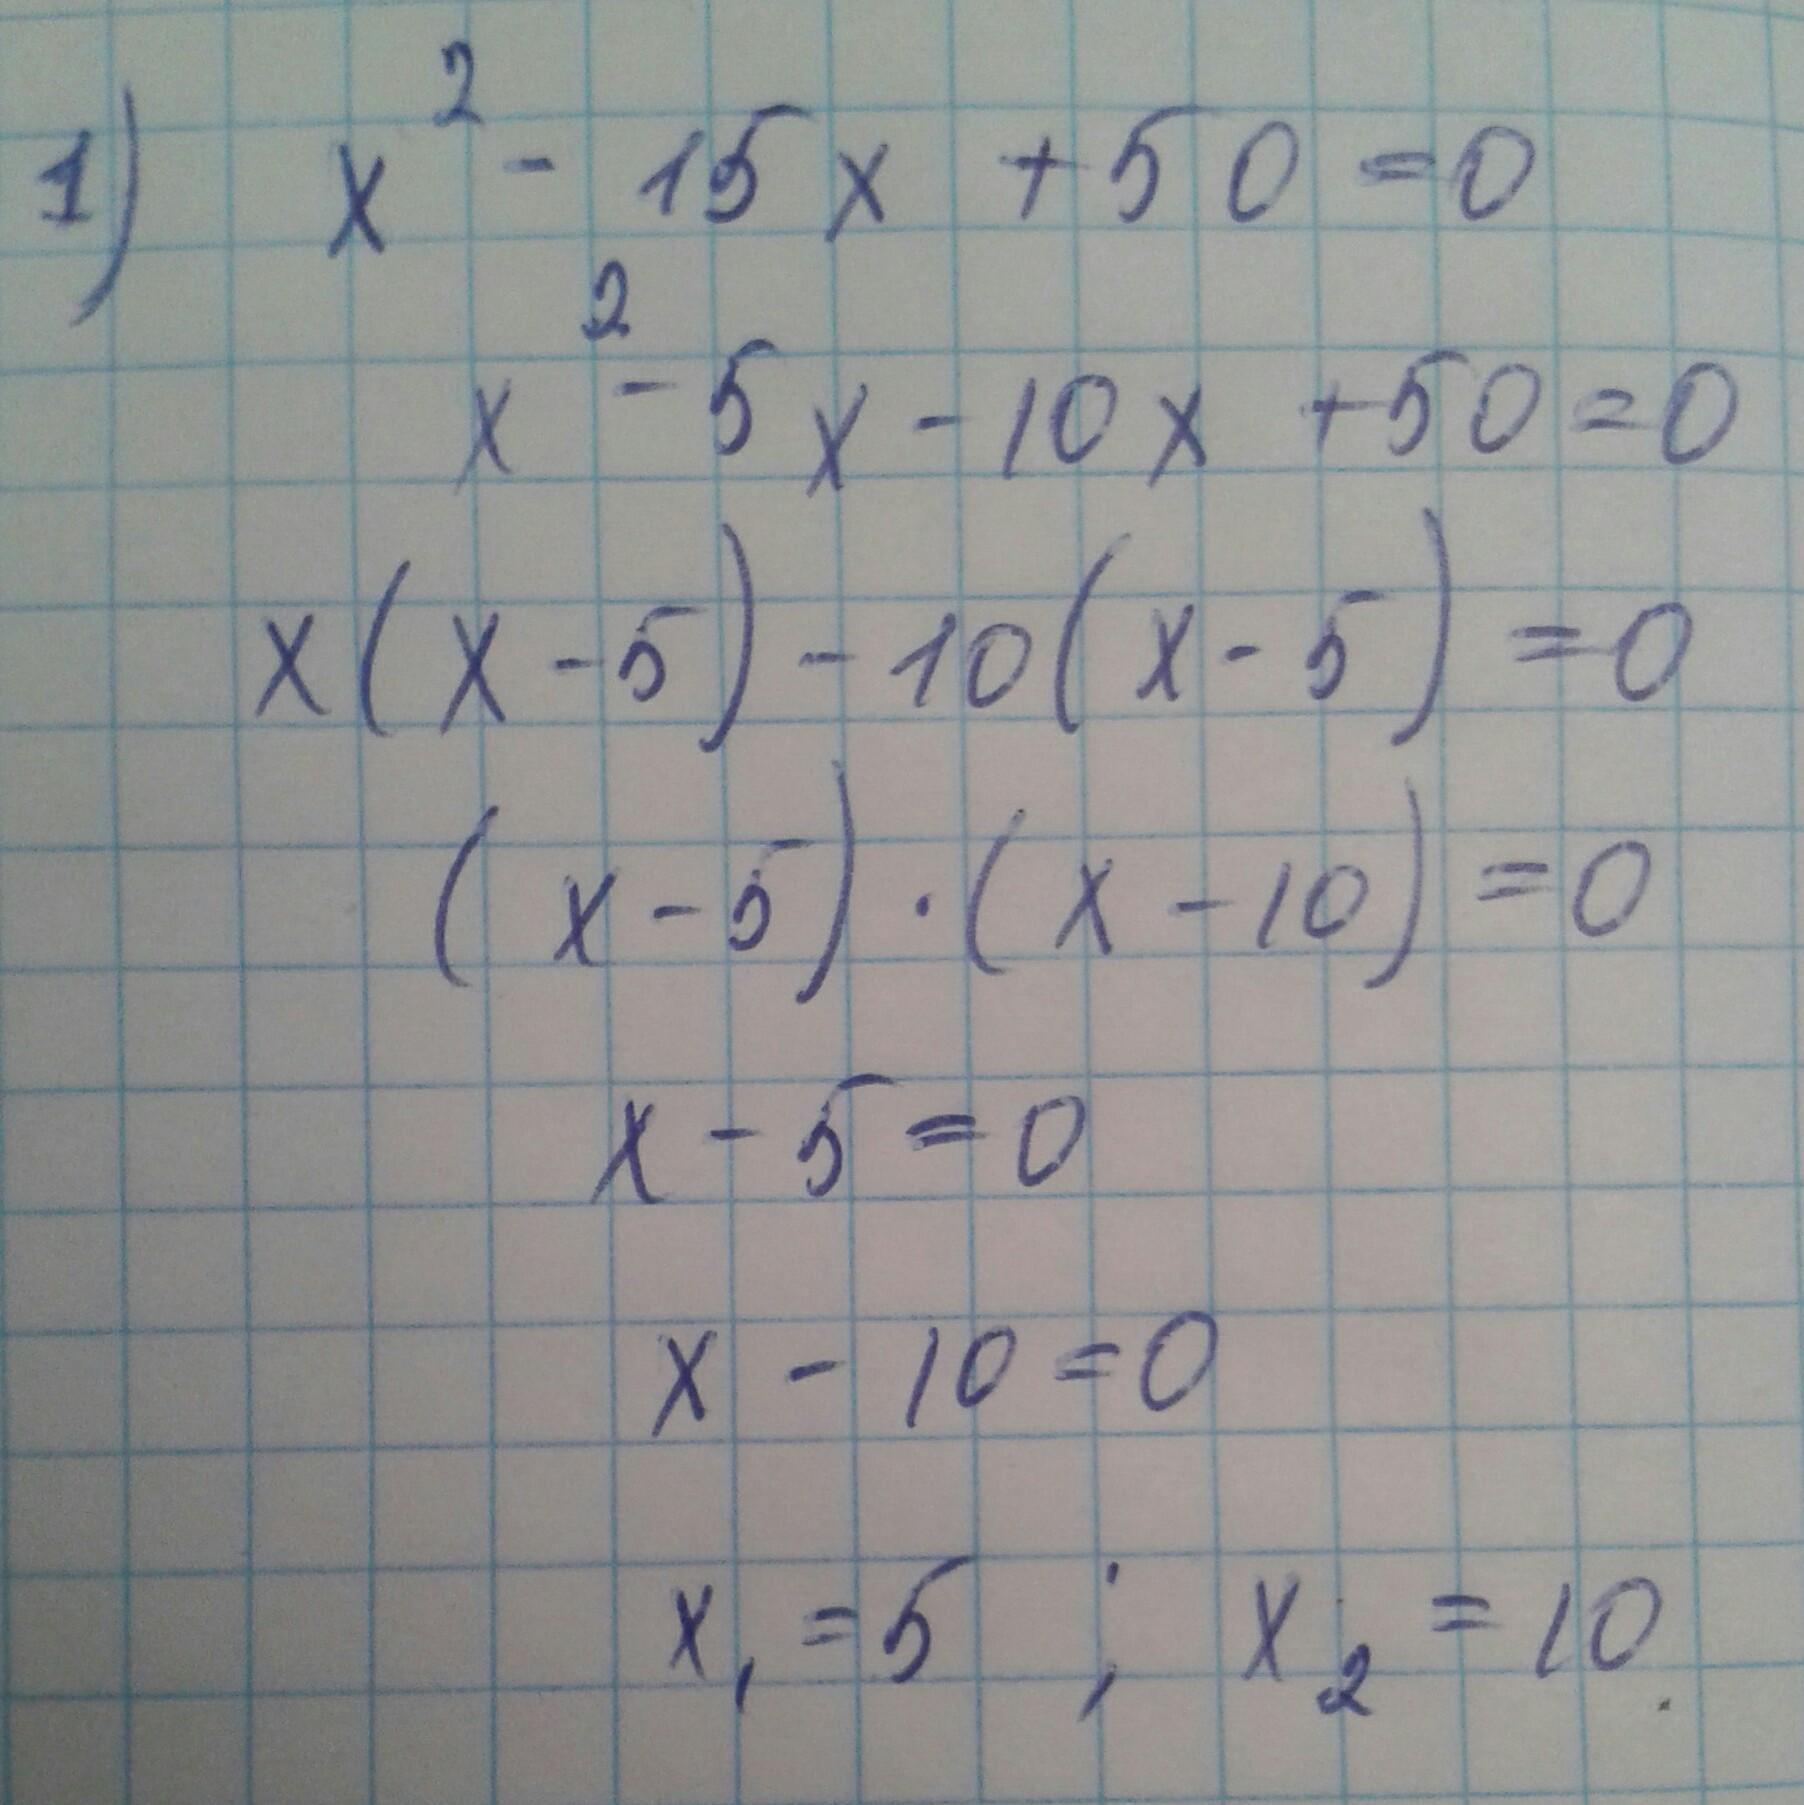 1) x² - 15x + 50 = 0
x² - 5x - 10x + 50 = 0
x(x - 5) - 10(x - 5) = 0
(x - 5) · (x - 10) = 0
x - 5 = 0
x - 10 = 0
x₁ = 5 ; x₂ = 10.